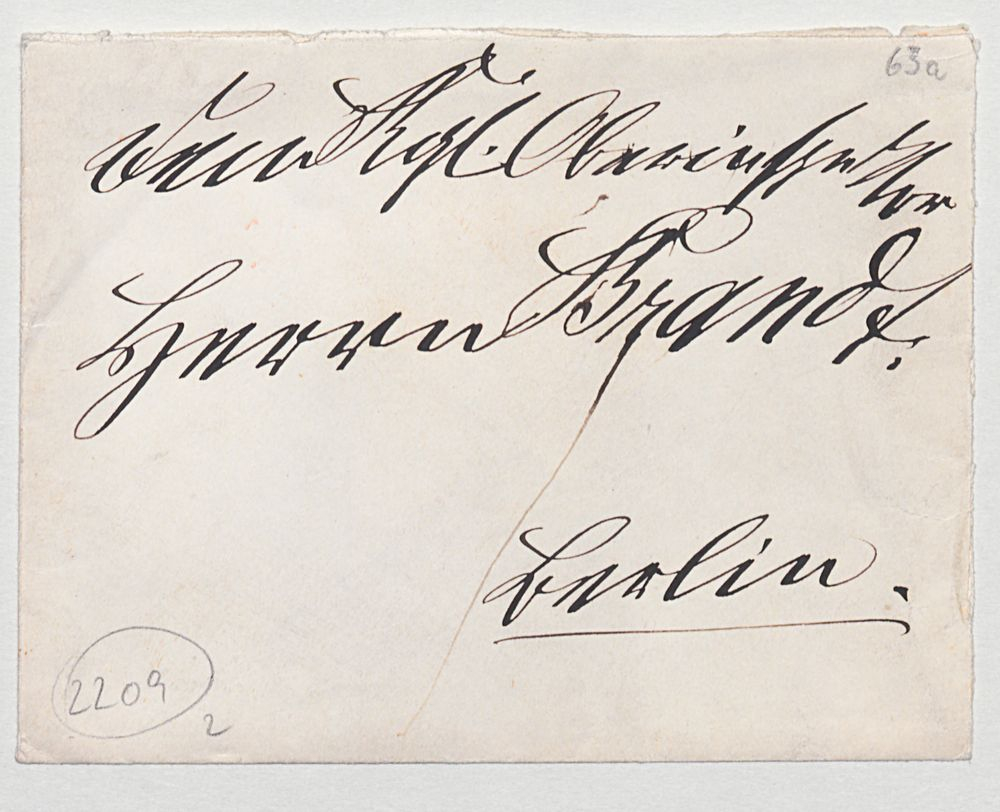 63a
Dem Kgl. Oberinspektor
Herrn Brandt.
Berlin.
2209
2